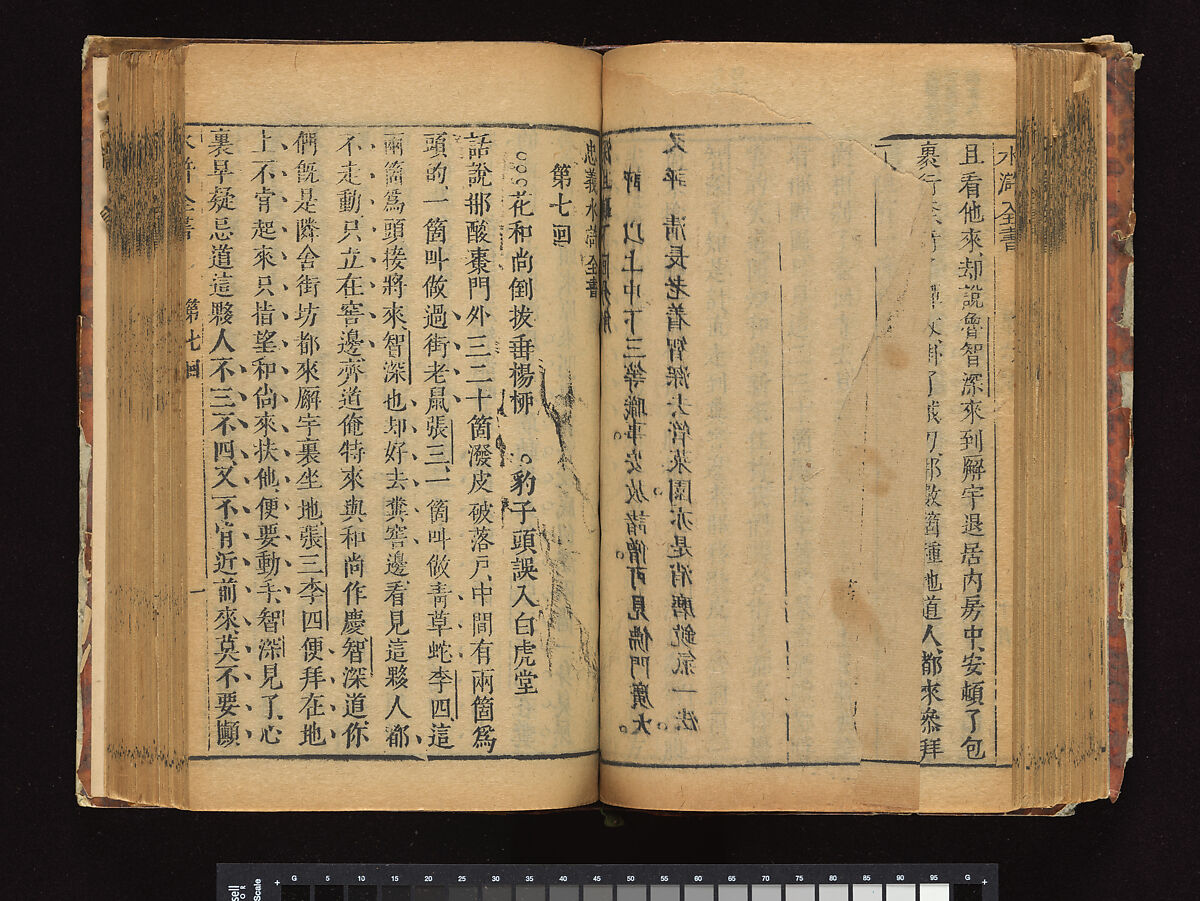 水滸全書
且看他來却說魯智深來到廨宇退居內房中安頓了包
裹行 掛了戒刀那數箇種地道人都來參拜
又評 清長老着智深去管菜園亦是消磨銳氣一法。
評 以上中下三等職事安放諸僧可見佛門廣大。
忠義水滸全書
第七回
花和尚倒拔垂楊柳 豹子頭誤入白虎堂
話說那酸棗門外三二十箇潑皮破落戶中間有兩箇爲
頭的一箇叫做過街老鼠張三一箇叫做靑草蛇李四這
兩箇爲頭接將來智深也却好去糞窖邊看見這夥人都
不走動只立在窖邊齊道俺特來與和尚作慶智深道你
們既是隣舍街坊都來廨宇裏坐地張三李四便拜在地
上不肯起來只指望和尚來扶他便要動手智深見了心
裏早疑忌道這夥人不三不四又不肯近前來莫不要攧
水滸全書 第七回 一